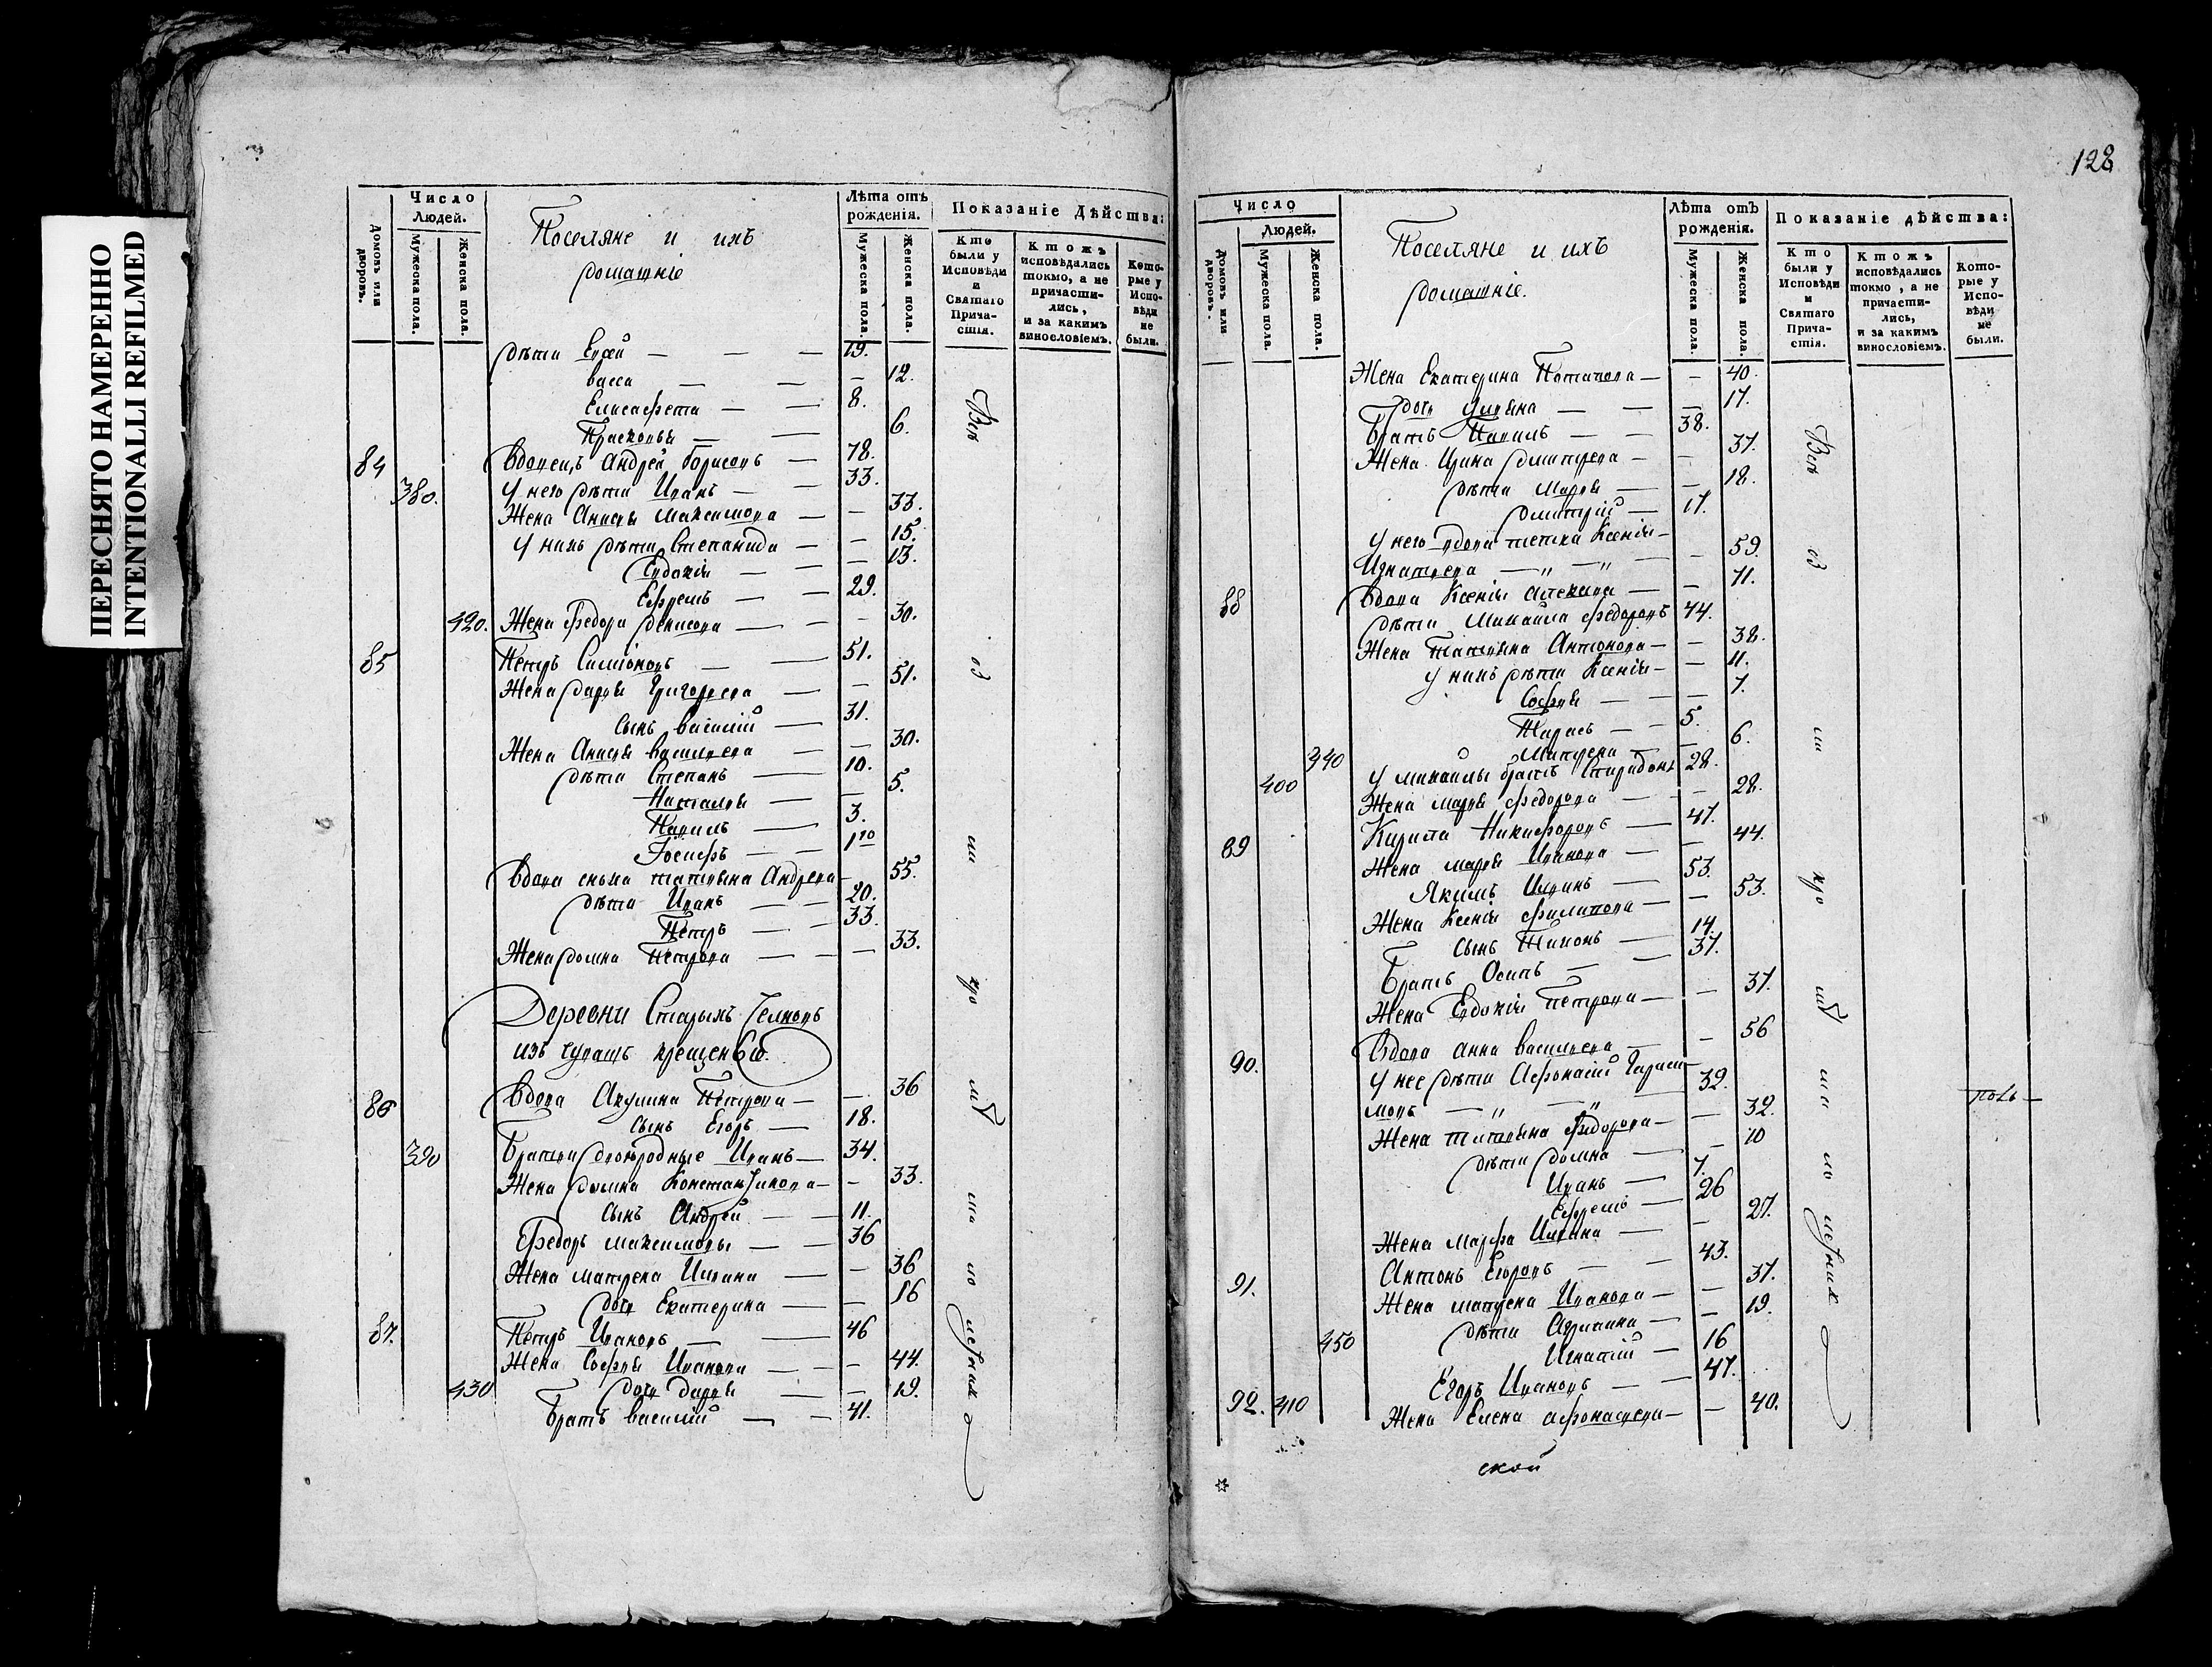 ПЕРЕСНЯТО НАМЕРЕННО
INTENTIONALLI REFILMED
Домовъ или дворовъ.
Число Людей.
Мужеска пола.
Женска пола.
Поселяне и ихъ
домашніе
Лѣта отъ рожденія.
Мужеска пола.
Женска пола.
Показаніе Дѣйства:
Кто были у Исповѣди и Святаго Причастія.
Ктожъ исповѣдались токмо, а не причастились, и за какимъ винословіемъ.
Которые у Исповѣди не были.
дѣти Евсей — — — 19.
васса — — — 12.
Елисафета — — 8.
Прасковья — — 6.
84 Вдовецъ Андрей Борисовъ — 78.
380. у него дѣти Иванъ — — 33.
Жена Анисья Максимова — — 33.
у нихъ дѣти Степанида — — 15.
Евдокія — — — 13.
Ефремъ — — 29.
420. Жена Федора Денисова — — 30.
85 Петръ Симіоновъ — — 51.
Жена Дарья Григорьева — — 51.
Сынъ василій — 31.
Жена Анисья васильева — — 30.
дѣти Степанъ — 10.
Наталья — — 5.
Павилъ — 3.
Іосифъ — — 1
Вдова татьяна Андреева — 55.
дѣти Иванъ — — 20.
Петръ — — 33.
Жена Домна Петрова — — — 33.
Деревни Старыхъ Челновъ
изъ чувашъ крещены
86 Вдова Акулина Петрова — — 36
Сынъ Егоръ — 18.
390 Братья двоюродные Иванъ — 34.
Жена Домна Константинова — — 33.
Сынъ Андрей — — 11.
Федоръ максимовы — — 36
Жена матрена Ильина — — 36
дочь Екатерина — — 16
87. Петръ Ивановъ — — 46
Жена Софья Иванова — — — 44.
430 дочь Дарья — — 19.
Братъ василій — — 41.
Всѣ
128
Число
Людей.
Домовъ или дворовъ.
Мужеска пола.
Женска пола.
Поселяне и ихъ
домашніе.
Лѣта отъ рожденія.
Мужеска пола.
Женска пола.
Показаніе дѣйства:
Кто были у Исповѣди и Святаго Причастія.
Ктожъ исповѣдались токмо, а не причастились, и за какимъ винословіемъ.
Которые у Исповѣди не были.
Жена Екатерина Потапова — — 40.
дочь Ульяна — — — 17.
Братъ Павилъ — — 38.
Жена Ирина Дмитрева — — 37.
дѣти Марья — — 18.
Дмитрій — 17.
у него вдова тетка Ксенія —
Игнатьева — „ — „ — — 59.
88 Вдова Ксенія — — 71.
дѣти Михаила Федоровъ 44.
Жена Татьяна Антонова — — 38.
у нихъ дѣти Ксенія — — 11.
Софья — — — 7.
Тарасъ — — 5.
440 Матрена — — 6.
400 у михаилы братъ Спиридонъ 28.
Жена марья Федорова — — 28.
89 Кирила Никифоровъ — 47.
Жена марья Иванова — — 44.
Якимъ Ильинъ — 53.
Жена Ксенія Филипова — — 53.
Сынъ Тихонъ — 14.
Братъ Осипъ — — 37.
Жена Евдокія Петрова — — 37.
90. Вдова анна васильева — — 56
у нее дѣти Афонасій Гараси-
мовъ — „ — „ 32.
Жена татьяна Федорова — — 32.
дѣти Домна — — 10
Иванъ — 7.
Ефремъ — 26
Жена Марфа Ильина — — 27.
91. Антонъ Егоровъ — — 43.
Жена матрена Иванова — — 37.
дѣти — — 19.
450 Игнатій — 16
92. 410 Егоръ Ивановъ — — 47.
Жена Елена афонасьева — — 40.
Всѣ
ской